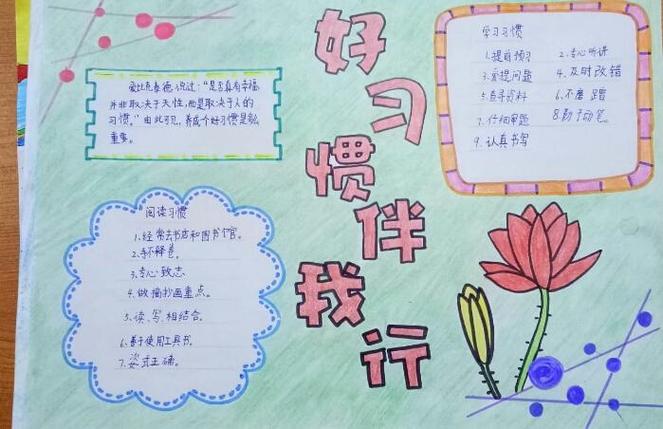 好习惯伴我行
爱比克泰德说过：“是否真有幸福
并非取决于天性，而是取决于人的
习惯。”由此可见，养成个好习惯是多么
重要。
学习习惯
1.提前预习 2.专心听讲
3.爱提问题 4.及时改错
5.查寻资料 6.不磨蹭
7.仔细审题 8.勤于动笔
9.认真书写
阅读习惯
1.经常去书店和图书馆。
2.手不释卷。
3.专心致志
4.做摘抄画重点。
5.读、写、相结合。
6.善于使用工具书
7.姿式正确。